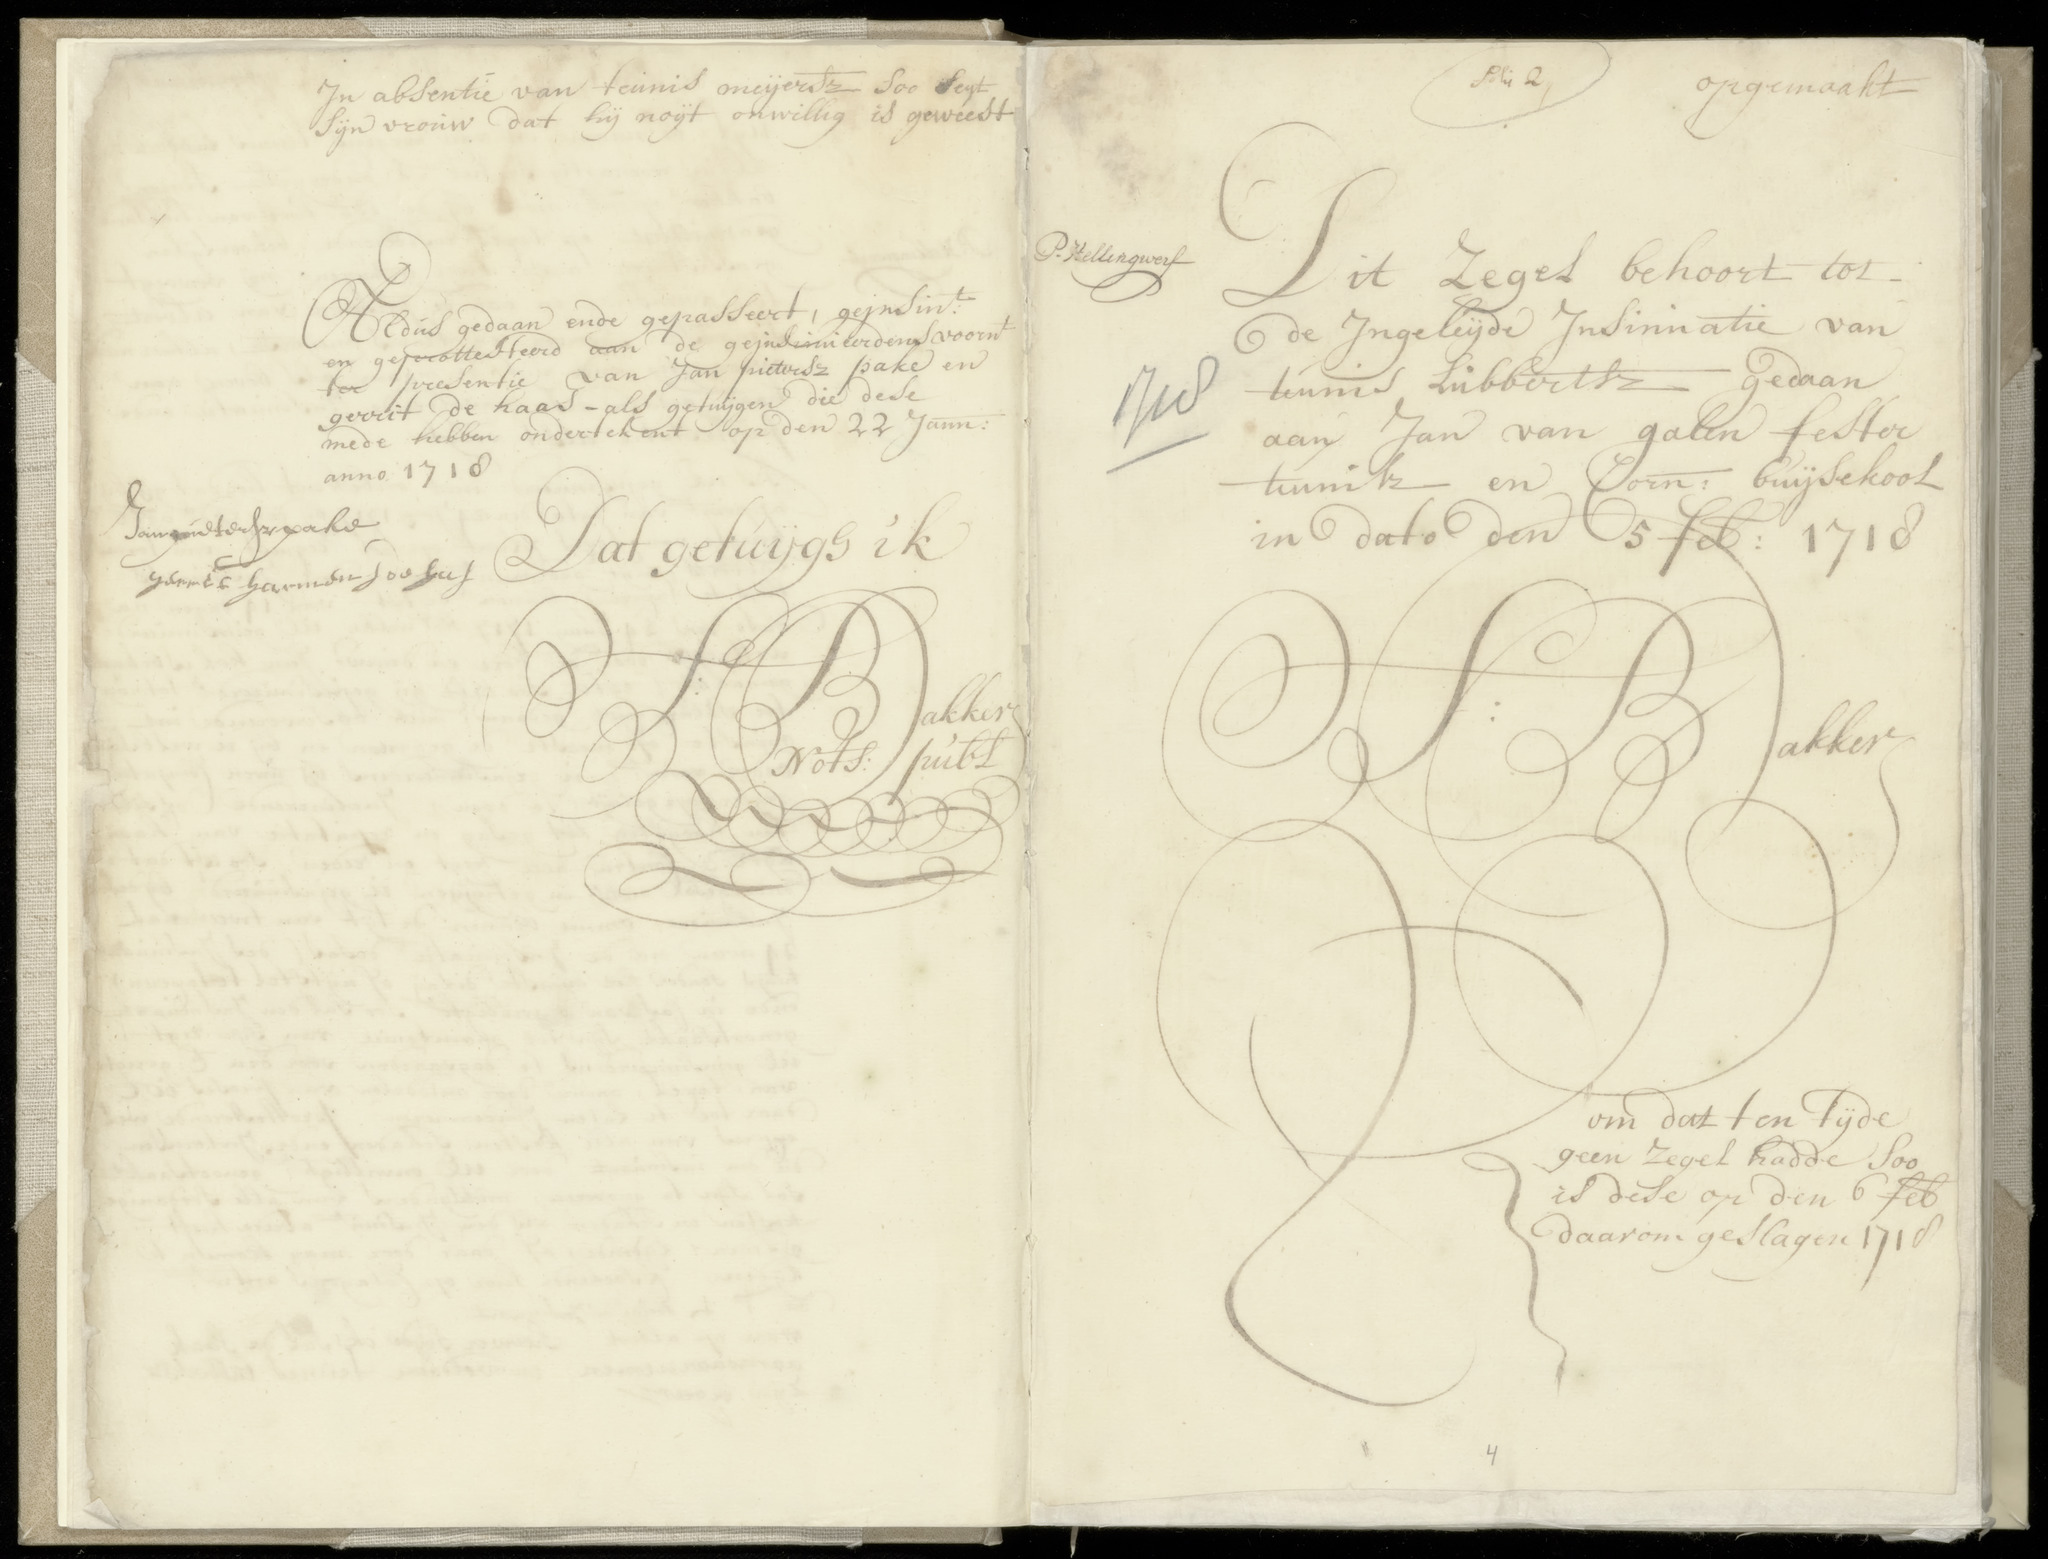 In absentie van teunis meijersz soo seyt
sijn vrouw dat hij noijt onwillig is geweest
Aldus gedaan ende gepasseert, geinsint:
en geprottesteerd aan de geinsinueerdens voornt
ter presentie van Jan pietersz pake en
gerrit de haas - als getuijgen die dese
mede hebben ondertekent op den 22 Janu:
anno 1718
Jan pietersz pake
gerrit harmen
Dat getuijgs ik
S: Bakker
Nots: publ
folio 2
opgemaakt
P. Hellingwerf
1718
Dit Zegel behoort tot
de Ingeleijde Insinuatie van
teunis Lubbertsz Gedaan
aan Jan van galen fester
teunisz en Corn: buijsekool
in dato den 5 feb: 1718
S: Bakker
om dat ten tijde
geen Zegel hadde soo
is dese op den 6 feb
daarom geslagen 1718
4